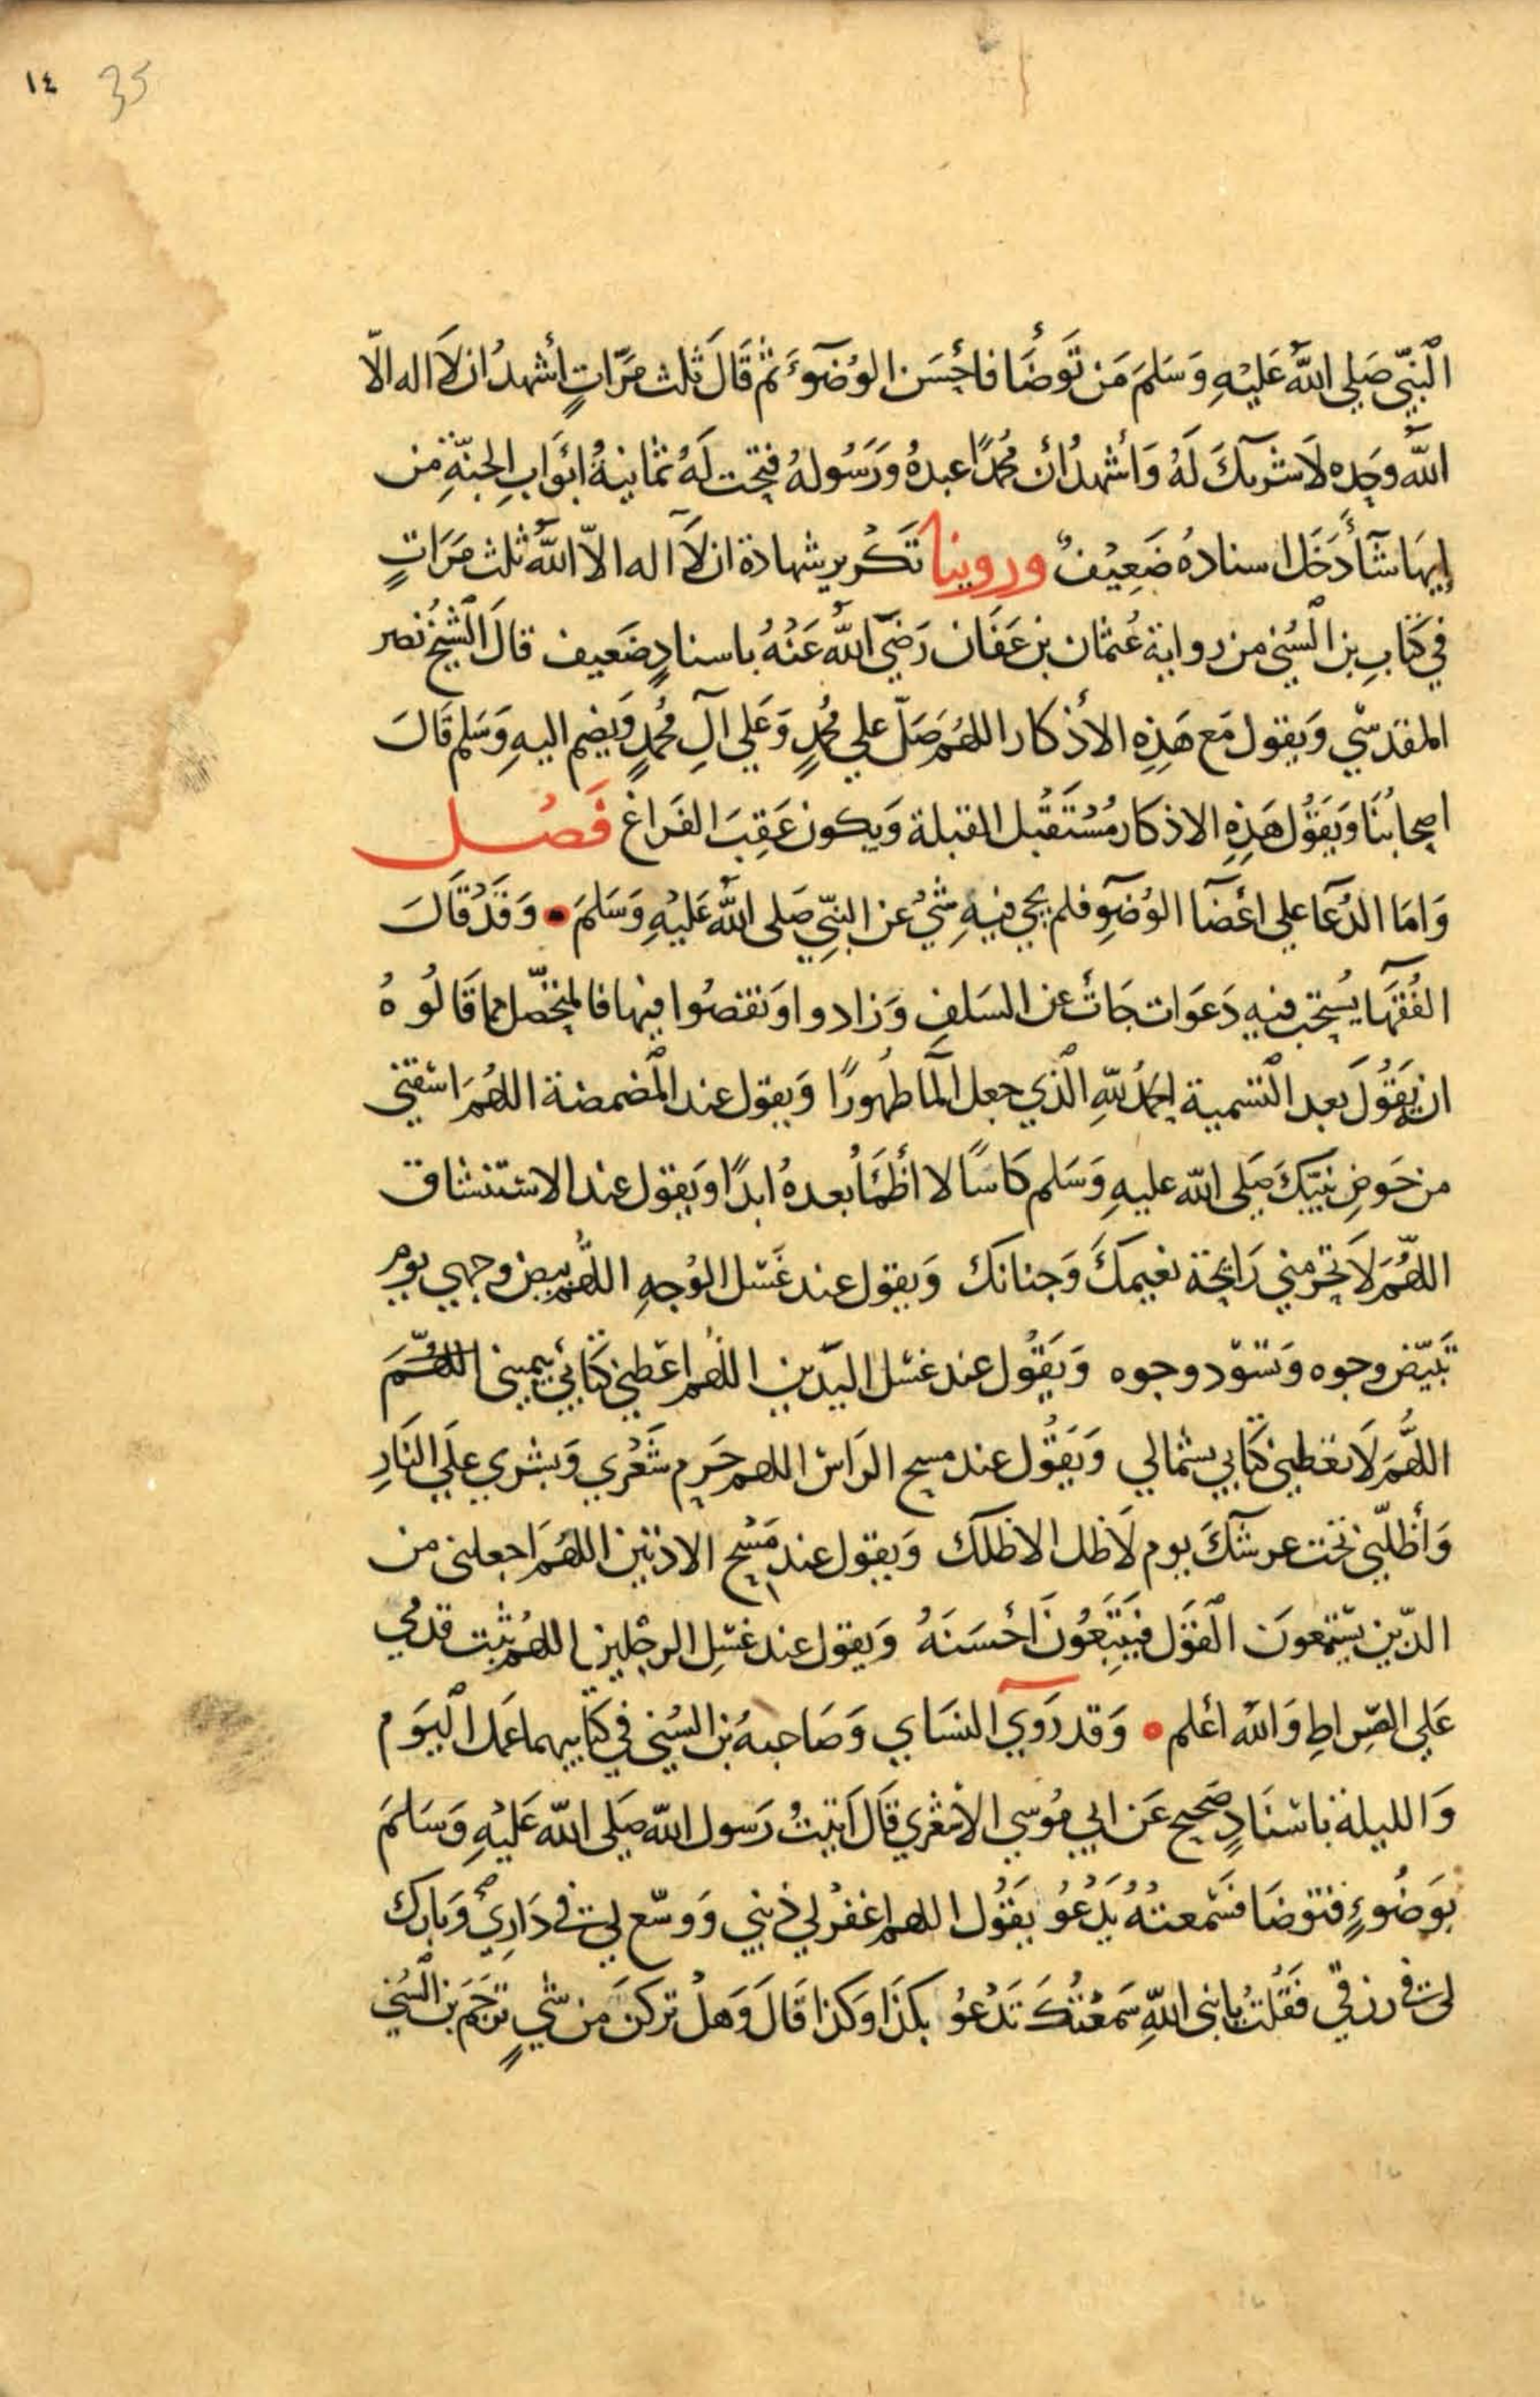 ١٤ 35
النبّي صَلى اللهُ عَليْهِ وَسَلمَ مَن تَوَضَأ فاحْسَن الوُضوءَ ثم قَالَ ثلث مَرّاتٍ أشهدُ ان لَا اله الّا
اللهُ وحده لَا شريكَ لَهُ وَأشهدُ أن مُحمدًا عبدهُ وَرَسُولهُ فتحت لَهُ ثمانيةُ ابْوَابِ الجنّةِ من
ايهَا شآ دَخَل اسنادهُ ضَعِيْفٌ وروينا تَكْرير شهادة ان لَا اله الاّ اللهُ ثلث مَرَاتٍ
في كتَابِ بن السُني من رواية عُثمان بن عَفَان رَضَي اللهُ عَنْهُ باسنادٍ ضَعيف قالَ الشيخُ نصر
المقدسّي وَيقول مَع هَذِهِ الأذكار اللهُم صَلّ علي مُحمدٍ وَعَلي آلِ مُحمدٍ وَيضم اليهِ وَسَلم قَالَ
اصحابُنَا وَيَقُول هَذِهِ الاذكار مُسْتَقْبل القبلة وَيكون عَقِبَ الفَراغ فَصْل
وَامَا الدُعَآ على اعْضَآ الوُضوءِ فلم يجي فيهِ شيٌ عن النبّيِ صَلى اللهُ عَليْهِ وَسَلمَ • وَقَدْ قَالَ
الفُقهَا يُستحَب فيهِ دَعَوَات جَاتْ عن السَلفِ وَزادوا وَنقصُوا فيها فالمتحصّل مما قَالُوهُ
ان يَقُولَ بَعد التسمية الحمدُ للهِ الّذي جعل المَآ طهُورًا وَيقول عند المضمضة اللهُمَ اسْقني
من حَوضِ نبيّكَ صَلى الله عليهِ وَسَلم كَاسًا لا أظمَأُ بعدهُ ابدًا وَيقول عند الاستنشاق
اللهُمَ لَا تحرمني رَايحة نعيمكَ وَجنانكَ وَيقول عند غَسْل الوَجهِ اللهُم بيض وجهي يوم
تبيّض وجوه وَتسّود وجوه وَيَقُول عند غسْل اليَدين اللهُم اعْطني كتَابي بيميني اللهُمَ
اللهُمَ لَا تعْطني كتَابي بشمالي وَيَقُول عند مسح الرَاسْ اللهم حَرم شَعْري وَبشري علَي النَارِ
وَأظلّني تحت عرشكَ يوم لَا ظل الا ظلكَ وَيقول عند مَسْح الاذنين اللهُمَ اجعلني من
الذّين يستمعونَ القَول فيَتبّعُونَ احْسَنَهُ وَيقول عند غسْلِ الرجْلين اللهُم ثبت قدمي
عَلي الصِراطِ وَاللهُ اعْلم • وَقد رَوي النسَاي وَصَاحبهُ بن السُني في كتابيهما عَمل اليَوم
وَالليلة باسْنَادٍ صَحيح عَن ابي مُوسي الاشعْري قَالَ اتيتُ رَسول اللّه صَلى اللّه عَليْهِ وَسَلمَ
بوَضُوءٍ فتوَضَا فسَمعتهُ يَدْعُوُ يَقُول اللهم اغفرْ لي ذنبي وَوسّع لي في دَارِي وَبارك
لي في رزقي فقَلتُ يا نبي اللّهِ سَمعْتكَ تَدْعُوُ بكذَا وَكذا قَالَ وَهلْ تركنَ من شيٍ ترجَم بن السُني